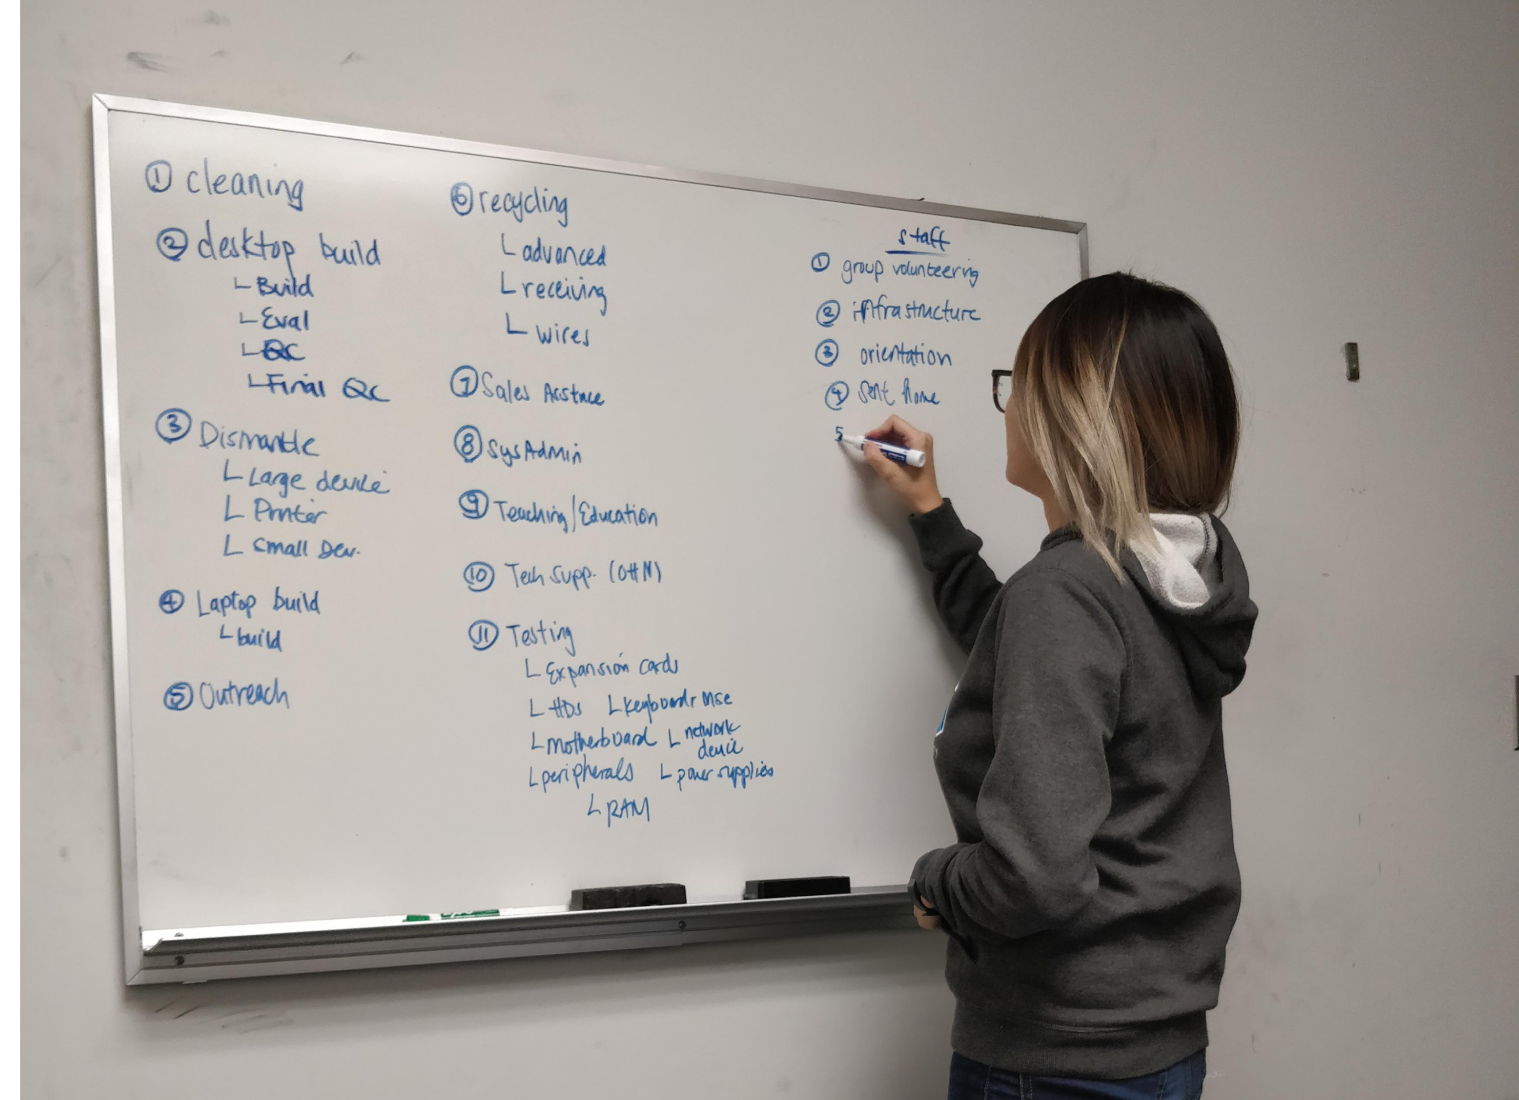 ① cleaning
② desktop build
└ Build
└ Eval
└ QC
└ Final QC
③ Dismantle
└ Large device
└ Printer
└ Small Dev.
④ Laptop build
└ build
⑤ Outreach
⑥ recycling
└ advanced
└ receiving
└ wires
⑦ Sales
⑧ SysAdmin
⑨ Teaching/Education
⑩ Tech Supp. (OHM)
⑪ Testing
└ Expansion cards
└ HDs └ Keyboard
└ Motherboard └ network
device
└ peripherals └ power supplies
└ RAM
staff
① group volunteering
② infrastructure
③ orientation
④ Sent home
5